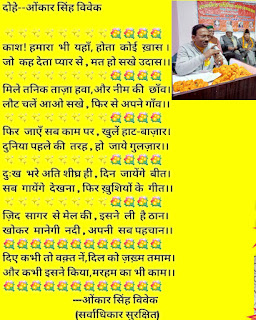 दोहे--ओंकार सिंह विवेक
काश! हमारा भी यहाँ, होता कोई ख़ास ।
जो कह देता प्यार से , मत हो सखे उदास।।
मिले तनिक ताज़ा हवा,और नीम की छाँव।
लौट चलें आओ सखे , फिर से अपने गाँव।।
फिर जाएँ सब काम पर , खुलें हाट-बाज़ार।
दुनिया पहले की तरह , हो जाये गुलज़ार।।
दुःख भरे अति शीघ्र ही , दिन जायेंगे बीत।
सब गायेंगे देखना , फिर ख़ुशियों के गीत।।
ज़िद सागर से मेल की , इसने ली है ठान।
खोकर मानेगी नदी , अपनी सब पहचान।।
दिए कभी तो वक़्त नें,दिल को ज़ख़्म तमाम।
और कभी इसने किया,मरहम का भी काम।।
---ओंकार सिंह विवेक
(सर्वाधिकार सुरक्षित)